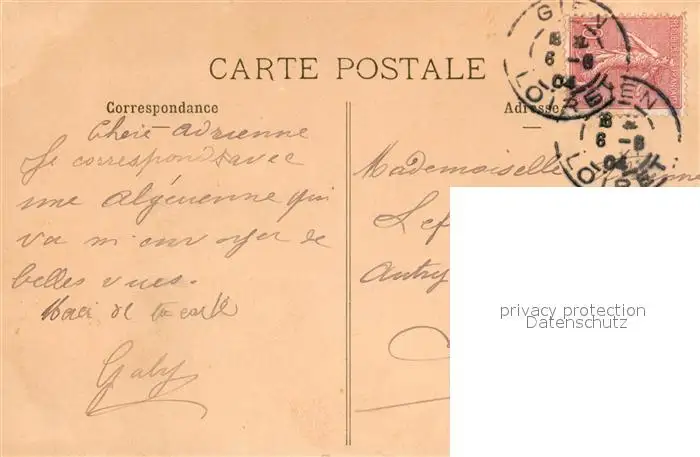 CARTE POSTALE
Correspondance
Adresse
Chère Adrienne
Je corresponds avec
une algérienne qui
va m'envoyer de
belles vues.
de ta carte
Gaby
Mademoiselle
Lef
Autry
GIEN
6 - 8
04
LOIRET
GIEN
6 - 8
04
LOIRET
privacy protection
Datenschutz